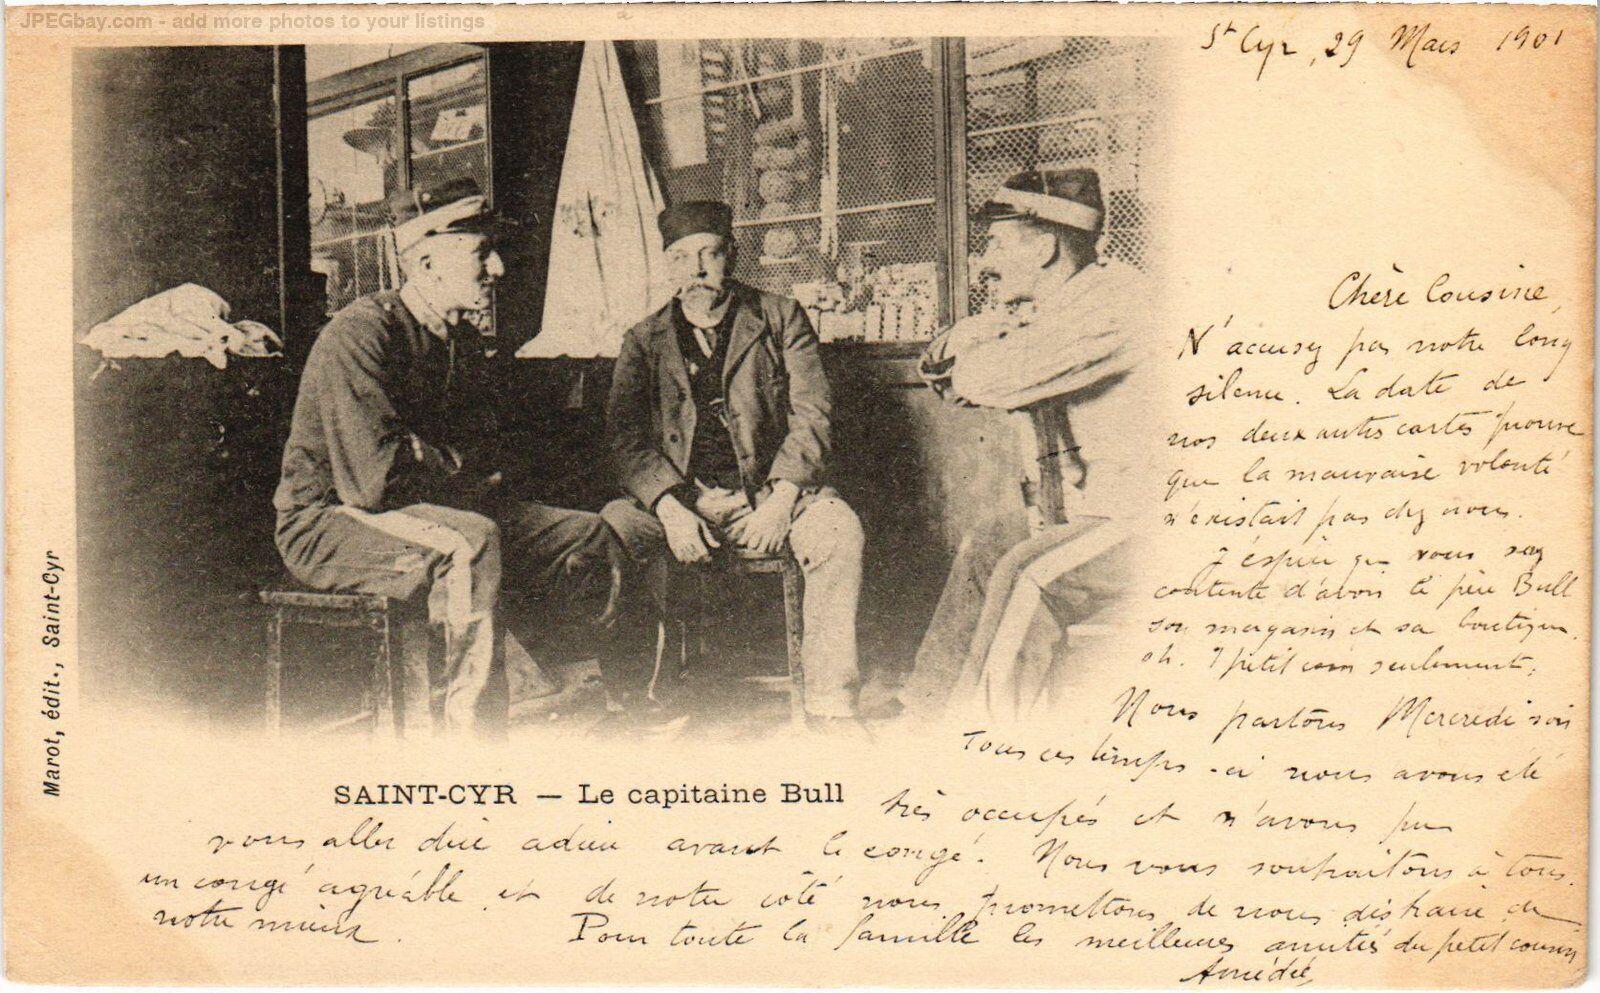 JPEGbay.com - add more photos to your listings
St Cyr, 29 Mars 1901
Chère Cousine,
N'accusez pas notre long
silence. La date de
nos deux autres cartes prouve
que la mauvaise volonté
n'existait pas chez nous.
J'espère que vous serez
contente d'avoir le père Bull
son magasin et sa boutique.
oh. 1 petit coin seulement.
Nous partons Mercredi soir
Tous ces temps-ci nous avons été
très occupés et n'avons pu
vous aller dire adieu avant le congé. Nous vous souhaitons à tous
un congé agréable et de notre côté nous promettons de nous distraire de
notre mieux.
Pour toute la famille les meilleures amitiés du petit cousin
Amédée
SAINT-CYR — Le capitaine Bull
Marot, édit., Saint-Cyr